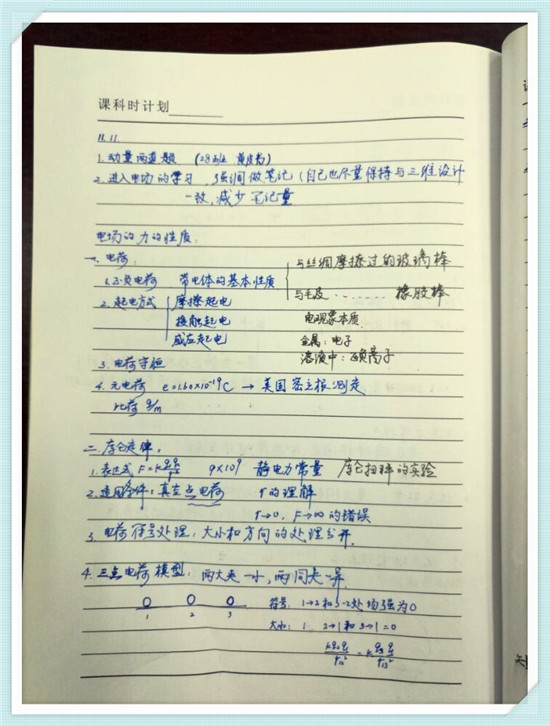 课科时计划
11.11.
1. 动量两道题 (28班
2. 进入电场的学习 强调做笔记(自己也尽量保持与三维设计
一致,减少笔记量
电场的力的性质:
一、电荷:
1. 正负电荷 带电体的基本性质 与丝绸摩擦过的玻璃棒
与毛皮 ······· 橡胶棒
2. 起电方式 摩擦起电 电现象本质.
接触起电 金属:电子
感应起电 溶液中:正负离子
3. 电荷守恒
4. 元电荷 e=1.60×10⁻¹⁹C → 美国密立根测定
比荷 q/m
二、库仑定律:
1. 表达式 F=k q₁q₂/r² 9×10⁹ 静电力常量 库仑扭秤的实验
2. 适用条件:真空点电荷 r的理解
r→0,F→∞的错误
3. 电荷符号处理:大小和方向的处理分开.
4. 三点电荷模型: 两大夹一小,两同夹一异.
1 2 3 符号: 1→2和3→2处场强为0
大小: 1: 2→1和3→1=0